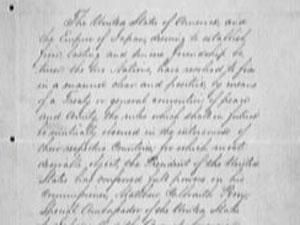 The United States of America, and
the Empire of Japan, desiring to establish
firm, lasting and sincere friendship be
tween the two Nations, have resolved to fix
in a manner clear and positive, by means
of a Treaty or general convention of peace
and amity, the rules which shall in future
be mutually observed in the intercourse of
their respective Countries; for which most
desirable object, the President of the United
States has conferred full powers on his
Commissioner, Matthew Calbraith Perry,
Special Ambassador of the United States